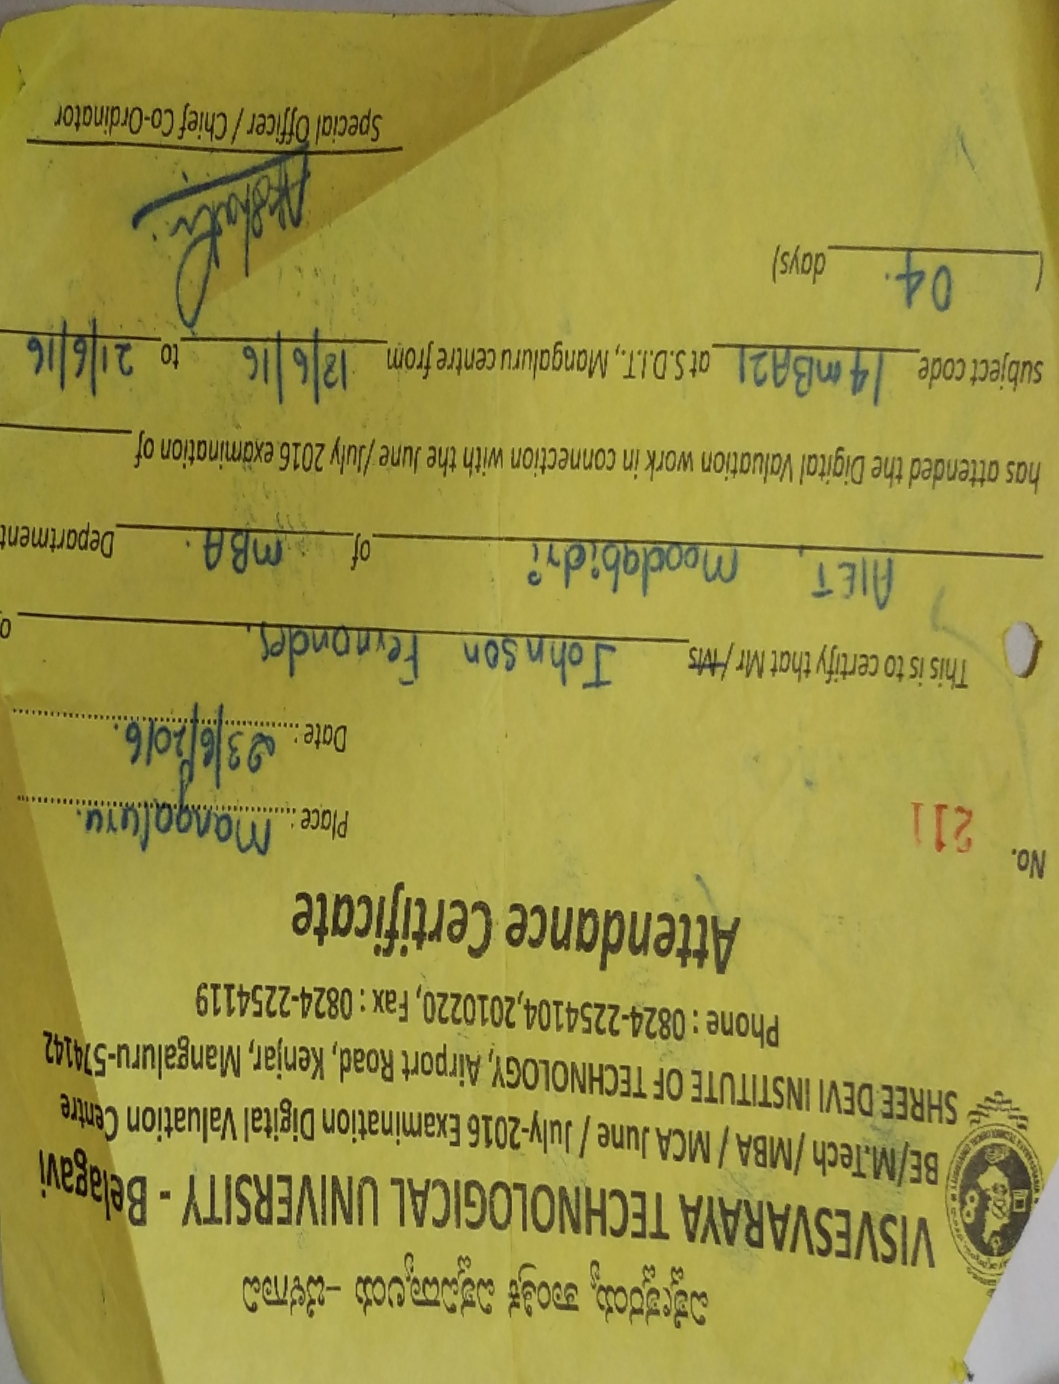 ವಿಶ್ವೇಶ್ವರಯ್ಯ ತಾಂತ್ರಿಕ ವಿಶ್ವವಿದ್ಯಾಲಯ – ಬೆಳಗಾವಿ
VISVESVARAYA TECHNOLOGICAL UNIVERSITY - Belagavi
BE/M.Tech /MBA / MCA June / July-2016 Examination Digital Valuation Centre
SHREE DEVI INSTITUTE OF TECHNOLOGY, Airport Road, Kenjar, Mangaluru-574142
Phone : 0824-2254104,2010220, Fax : 0824-2254119
Attendance Certificate
No. 211
Place : Mangaluru.
Date : 23/6/2016.
This is to certify that Mr /Ms Johnson Fernandes, o
AIET, Moodabidri of MBA. Department
has attended the Digital Valuation work in connection with the June /July 2016 examination of
subject code 14MBA21 at S.D.I.T., Mangaluru centre from 18/6/16 to 21/6/16
( 04. days)
Special Officer / Chief Co-Ordinator